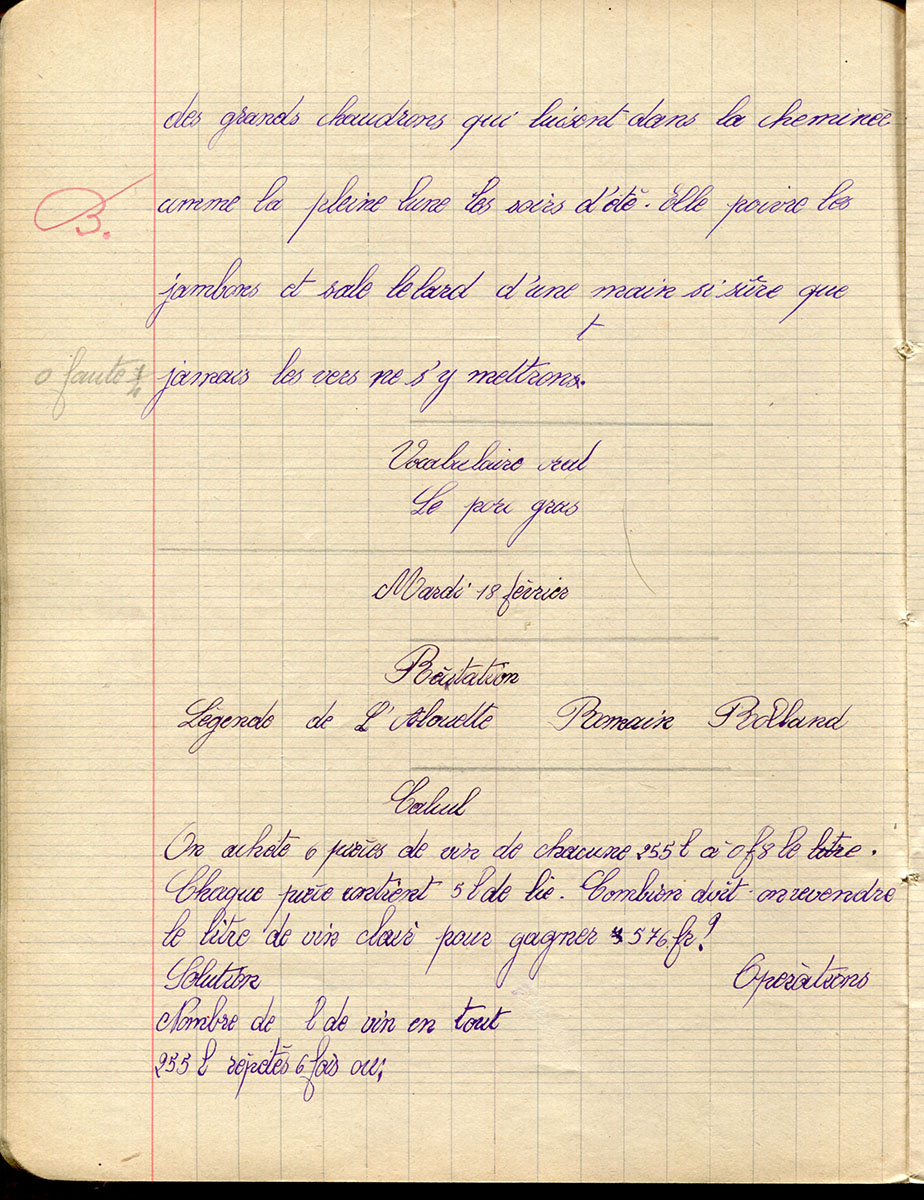 des grands chaudrons qui luisent dans la cheminée
comme la pleine lune les soirs d'été. Elle poivre les
B.
jambons et sale le lard d'une main si sûre que
t
0 faute 1/4
jamais les vers ne s'y mettrons.
Vocabulaire oral
Le porc gras
Mardi 18 février
Récitation
Légende de L'Alouette Romain Rolland
Calcul
On achète 6 pièces de vin de chacune 255 l à 0f8 le litre.
Chaque pièce contient 5 l de lie. Combien doit-on revendre
le litre de vin clair pour gagner 576 fr?
Solution Opérations
Nombre de l de vin en tout
255 l répétés 6 fois ou;